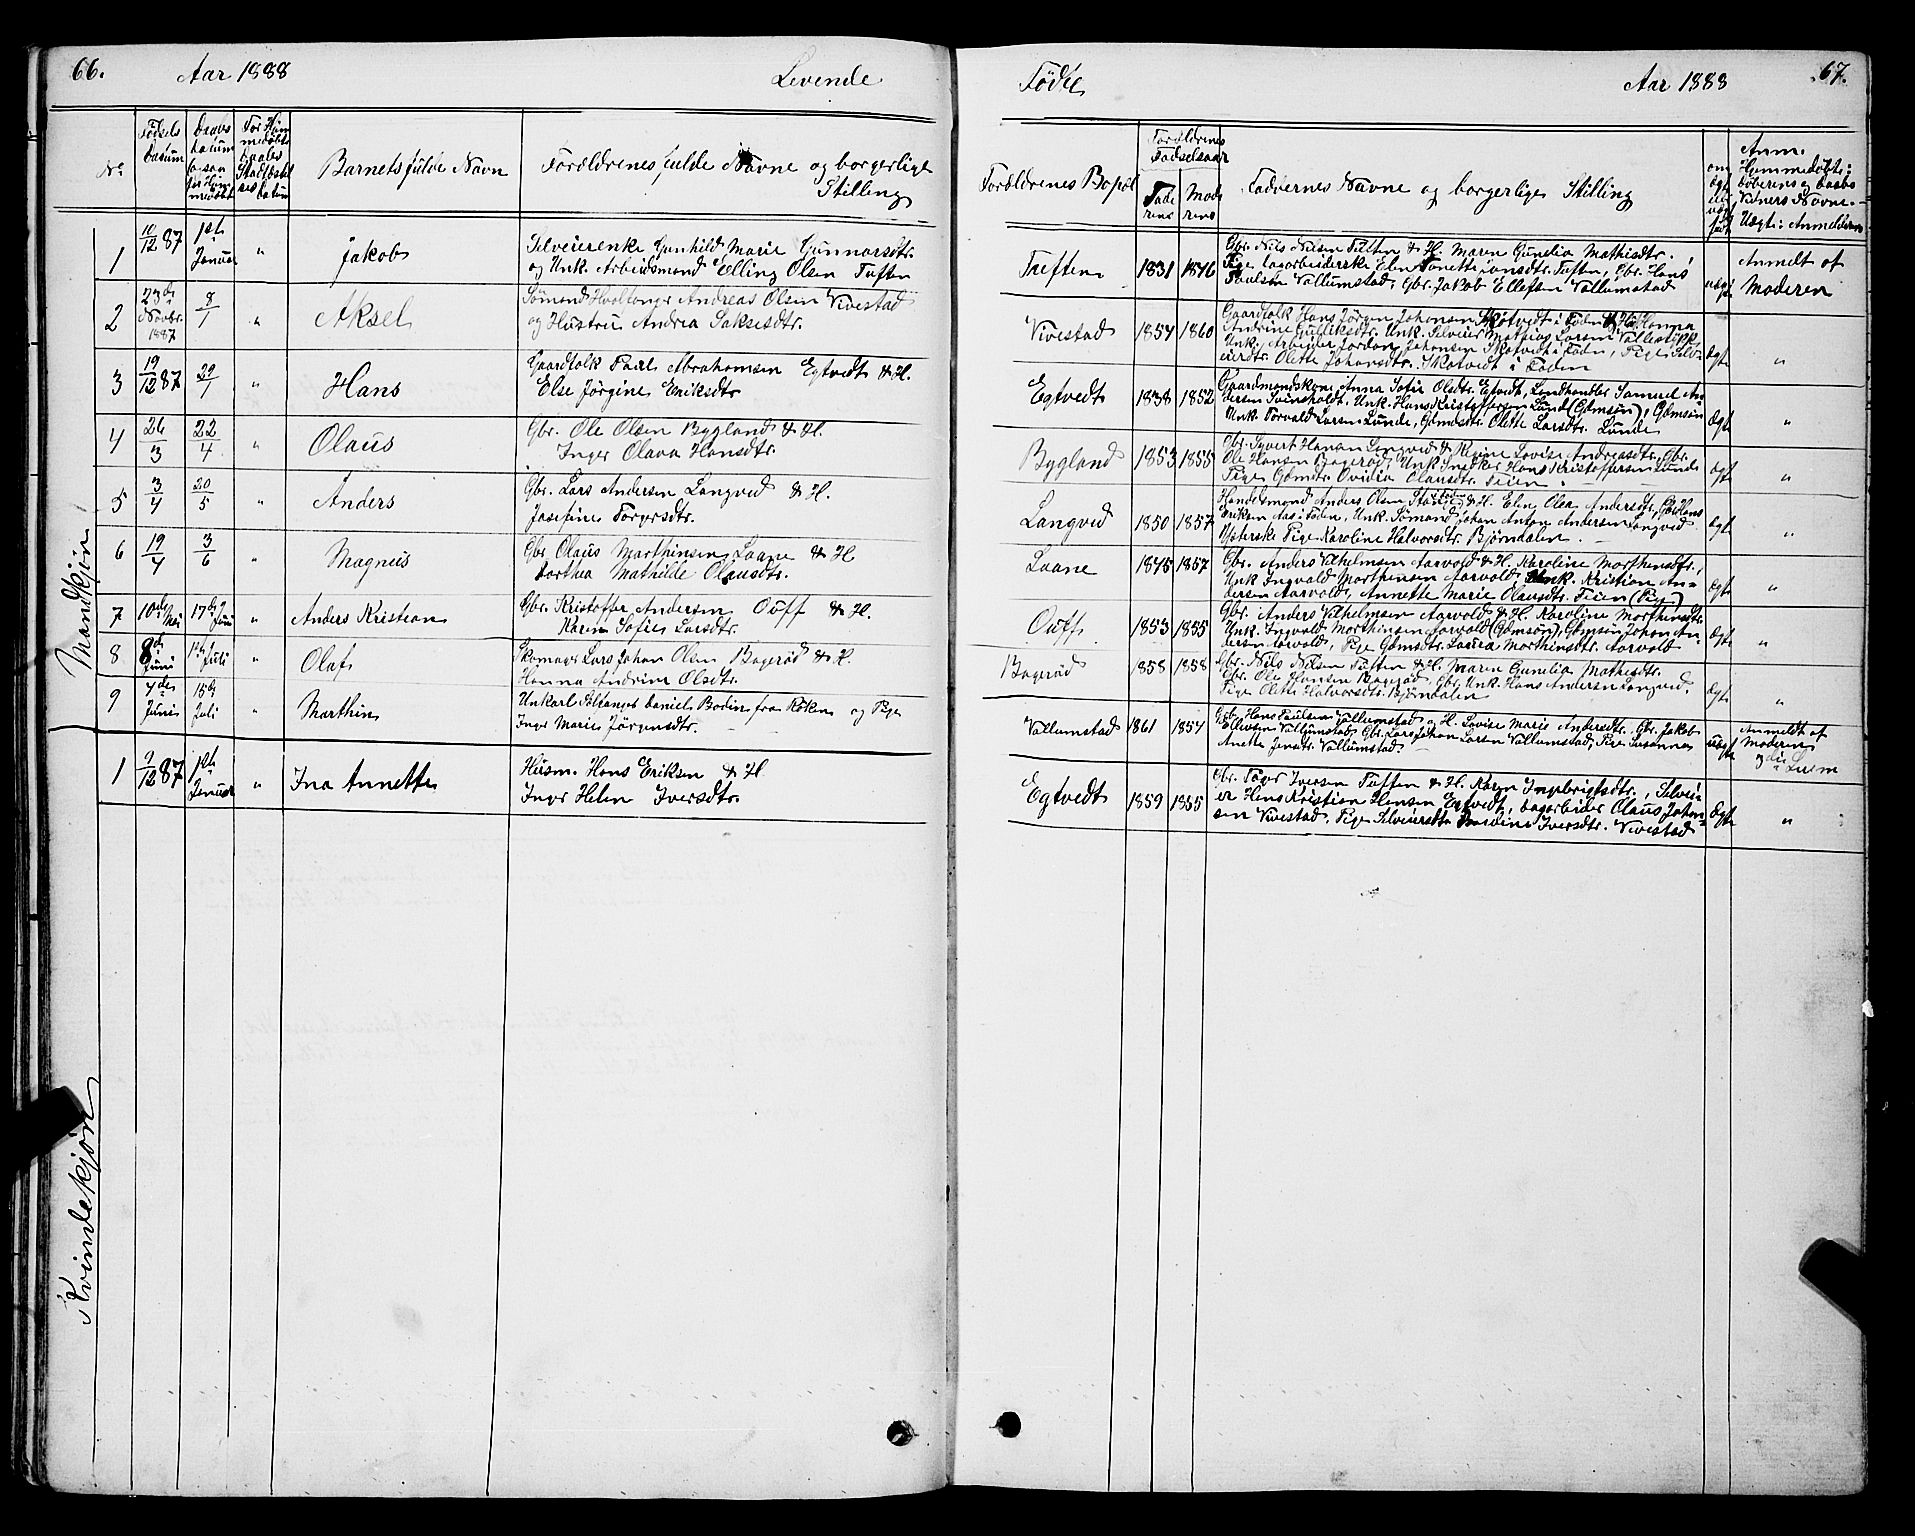 66. Aar 1888 Levende
Fødte Aar 1888 67.
No
Fødsels Datum
Daabs Datum
Barnets fulde Navn
Forældrenes fulde Navne og borgerlige
Stilling
Forældrenes Bopæl
Forældrenes Fødselsaar
Faderens
Moderens
Faddernes Navne og borgerlige Stilling
Mandkjøn
1 10/12 87 1ste Januar " Jakob
Selveierenke Gunhild Marie Gunnarsdtr.
og Unk. Arbeidsmand Elling Olsen Tuften
Tuften 1831 1846
Gbr. Nils Nilsen Tuften & H. Maren Gunelia Mathisdtr.,
Paulsen Vallumstad, Gbr. Jakob Ellefsen Vallumstad
uægte
Anmeldt af
Moderen
2 23de Novbr. 1887 8/1 " Aksel
Sømand Hvalfanger Andreas Olsen Vivestad
og Hustru Andrea Saksesdtr.
Vivestad 1854 1860
Gaardfolk Hans Jørgen Johansen Skotvedt i Foden & H. Hanna
Andrine Gulliksdtr. Unk. Selveier Mathias Larsen
Unk. Arbeider Jordan Johansen Skotvedt i Foden, Pige Selv-
eierdtr. Olette Johansdtr. Skotvedt i Foden
ægte "
3 19/12 87 29/1 " Hans
Gaardfolk Paul Abrahamsen Egtvedt & H.
Else Jørgine Eriksdtr
Egtvedt 1838 1852
Gaardmandskone Anna Sofie Olsdtr. Egtvedt, Landhandler Samuel An-
dersen Svinsholdt, Unk. Hans Kristoffersen Lund (Gdmsøn), Gdmsøn
Unk. Torvald Larsen Lunde, Gdmdtr. Olette Larsdtr. Lunde
ægte "
4 26/3 22/4 " Olaus
Gbr. Ole Olsen Bygland & H.
Inger Olava Hansdtr.
Bygland 1853 1855
Gbr. Syvert Hansen Langved & Regine Lovise Andreasdtr., Gbr.
Ole Hansen Bagerød, Unk. Snedker Hans Kristoffersen Lunde
Pige Gdmdtr. Ovidia Olausdtr. Feien
ægte "
5 3/4 20/5 " Anders
Gbr. Lars Andersen Langved & H.
Josefine Torgersdtr.
Langved 1850 1857
Handelsmand Anders Olsen & H. Elen Olea Andersdtr., Gbr. Hans
Eriksen Aas i Foden, Unk. Sømand Johan Anton Andersen Langved
Pige Karoline Halvorsdtr. Bjørndalen.
ægte "
6 19/4 3/6 " Magnus
Gbr. Olaus Marthinsen Laane & H
Dorthea Mathilde Olausdtr.
Laane 1845 1857
Gbr. Anders Vilhelmsen Aarvold & H. Karoline Marthinsdtr.,
Unk. Ingvald Marthinsen Aarvold, Unk. Kristian An-
dersen Aarvold, Annette Marie Olausdtr. Feien (Pige)
ægte "
7 10de Mai 17de Juni " Anders Kristian
Gbr. Kristoffer Andersen Ouff & H.
Karen Sofie Larsdtr.
Ouff 1853 1855
Gbr. Anders Vilhelmsen Aarvold & H. Karoline Marthinsdtr.
Unk. Ingvald Marthinsen Aarvold (Gdmsøn), Gdmsøn Johan An-
dersen Aarvold, Pige Gdmdtr. Laura Marthinsdtr. Aarvold
ægte "
8 8de Juni 1ste Juli " Olaf
Skomager Lars Johan Olsen Bagerød & H.
Hanna Andrine Olsdtr.
Bagerød 1858 1858
Gbr. Nils Nilsen Tuften & H. Maren Gunelia Mathisdtr.
Gbr. Ole Hansen Bagerød, Gbr. Unk. Hans Andersen Langved.
Pige Olette Halvorsdtr. Bjørndalen
ægte "
9 4de Juni 15de Juli " Marthin
Unkarl Daniel Bodin fra Røken og Pige
Inger Marie Jørgensdtr.
Vallumstad 1861 1854
Gbr. Hans Paulsen Vallumstad & H. Lovise Marie Andersdtr. Gbr. Jakob
Ellefsen Vallumstad Gbr. Lars Johan Larsen Vallumstad, Pige Susanna
Anette Jensdtr. Vallumstad
uægte
Anmeldt af
Moderen
Kvindekjøn
1 9/12 87 1ste Januar " Ina Annette
Husm. Hans Eriksen & H
Inger Helen Iversdtr.
Egtvedt 1859 1855
Gbr. Iversen Tuften & H. Karen Ingebrigtsdtr., Selvei-
er Hans Kristian Hansen Egtvedt, Dagarbeider Olaus Johan-
sen Vivestad, Pige Selveierdtr. Iversdtr. Vivestad
ægte "